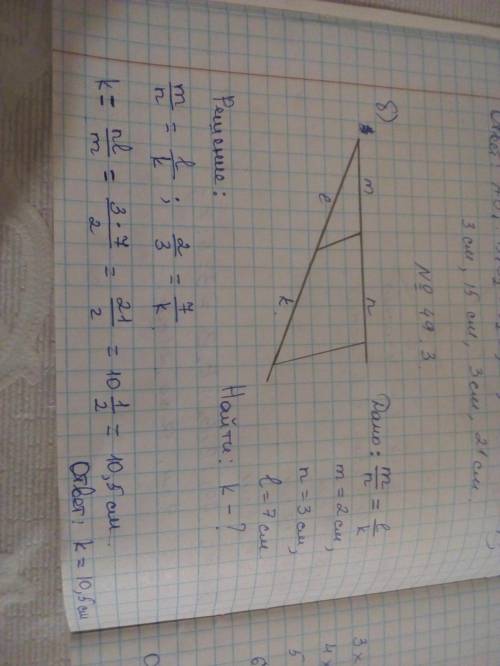 3 см, 15 см, 3 см, 21 см
№ 49.3.
б)
m n
l k
Дано: m/n = l/k
m = 2 см,
n = 3 см,
l = 7 см
Найти: k - ?
Решение:
m/n = l/k ; 2/3 = 7/k
k = nl/m = 3·7/2 = 21/2 = 10 1/2 = 10,5 см.
Ответ: k = 10,5 см
3 x
4 x
5
6